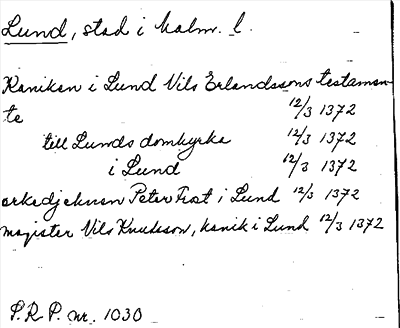 Lund, stad i Malm. l.
Kaniken i Lund Nils Erlandssons testamen-
te 12/3 1372
till Lunds domkyrka 12/3 1372
i Lund 12/3 1372
arkedjeknen Peter Frost i Lund 12/3 1372
magister Nils Knutsson, kanik i Lund 12/3 1372
P.R.P. nr. 1030